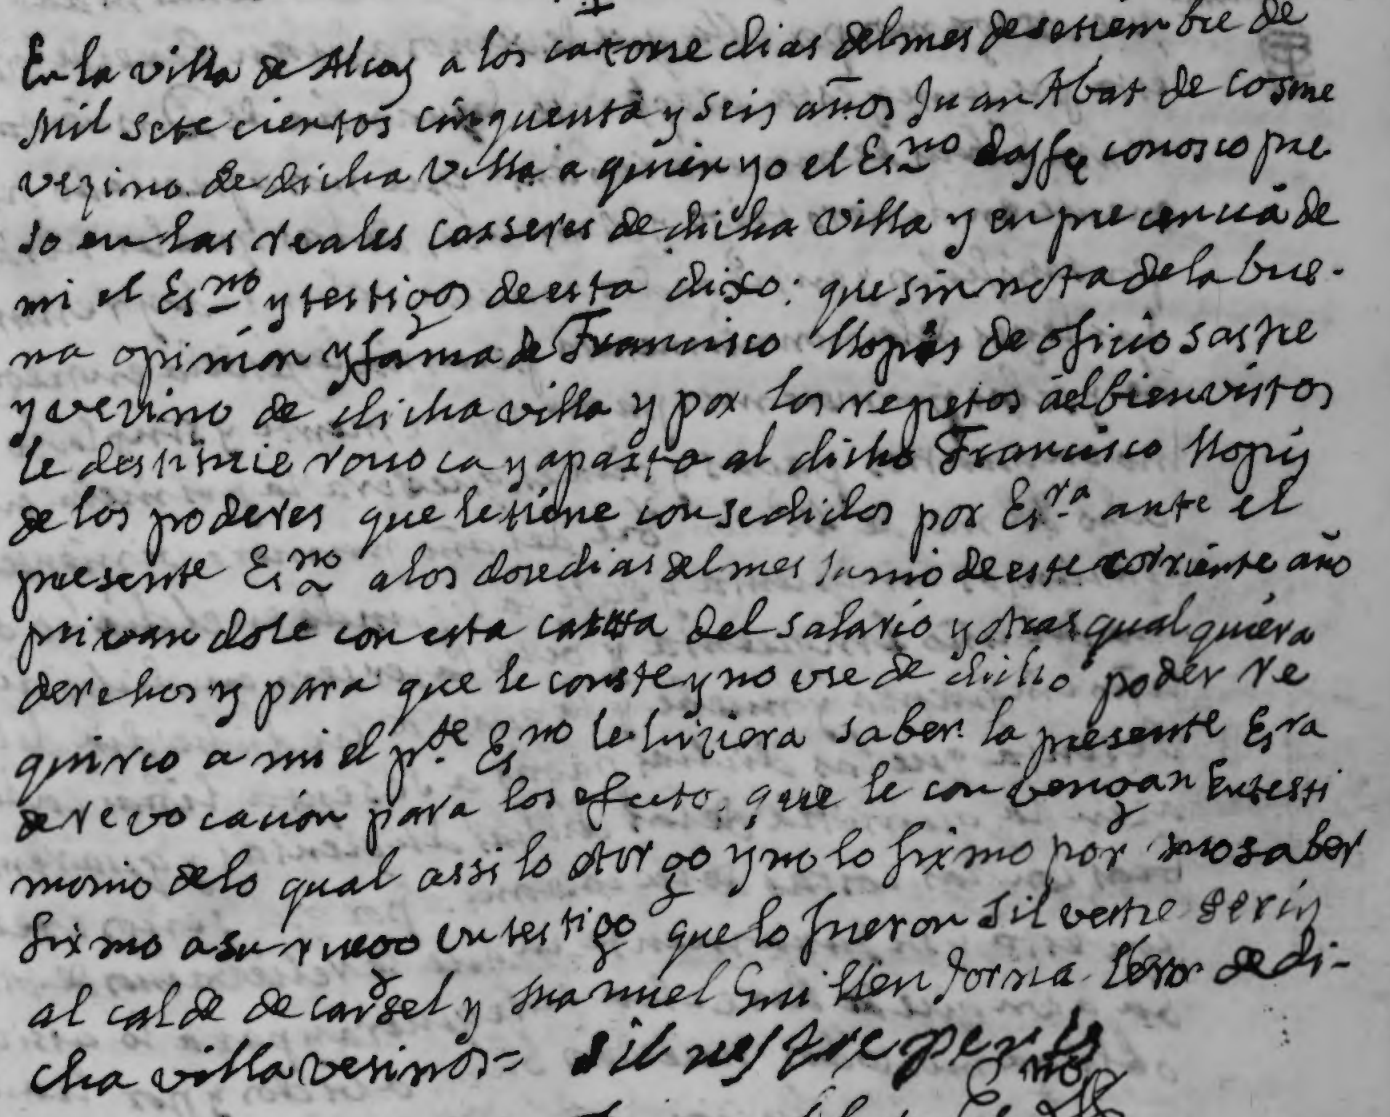 En la villa de Alcoy a los catorse dias del mes de setiembre de
Mil sete cientos cinquenta y seis años Juan Abat de Cosme
vezino de dicha Villa a quien yo el Esno doy fee conosco pre
so en las reales carseres de dicha villa y en precencia de
mi el Esno y testigos de esta dixo: que sin nota de la bue-
na opinion y fama de Francisco Llopis de oficio sastre
y vezino de dicha villa y por los repetos ael bien vistos
le destituie revoca y aparta al dicho Francisco Llopis
de los poderes que le tiene consedidos por Esra ante el
presente Esno a los dose dias del mes Junio de este corriente año
privandole con esta causa del salario y otras qualquiera
derehos y para que le conste y no use de dicho poder re
quirio a mi el pte Esno le hiziera saber la presente Esra
de revocacion para los efeto que le convengan En testi
monio de lo qual assi lo otorgo y no lo firmo por no saber
firmo a su ruego un testigo que lo fueron Silvestre Peris
alcalde de carsel y Manuel Guillen Jornalero de di-
cha villa vesinos= silvestre peris
Esno